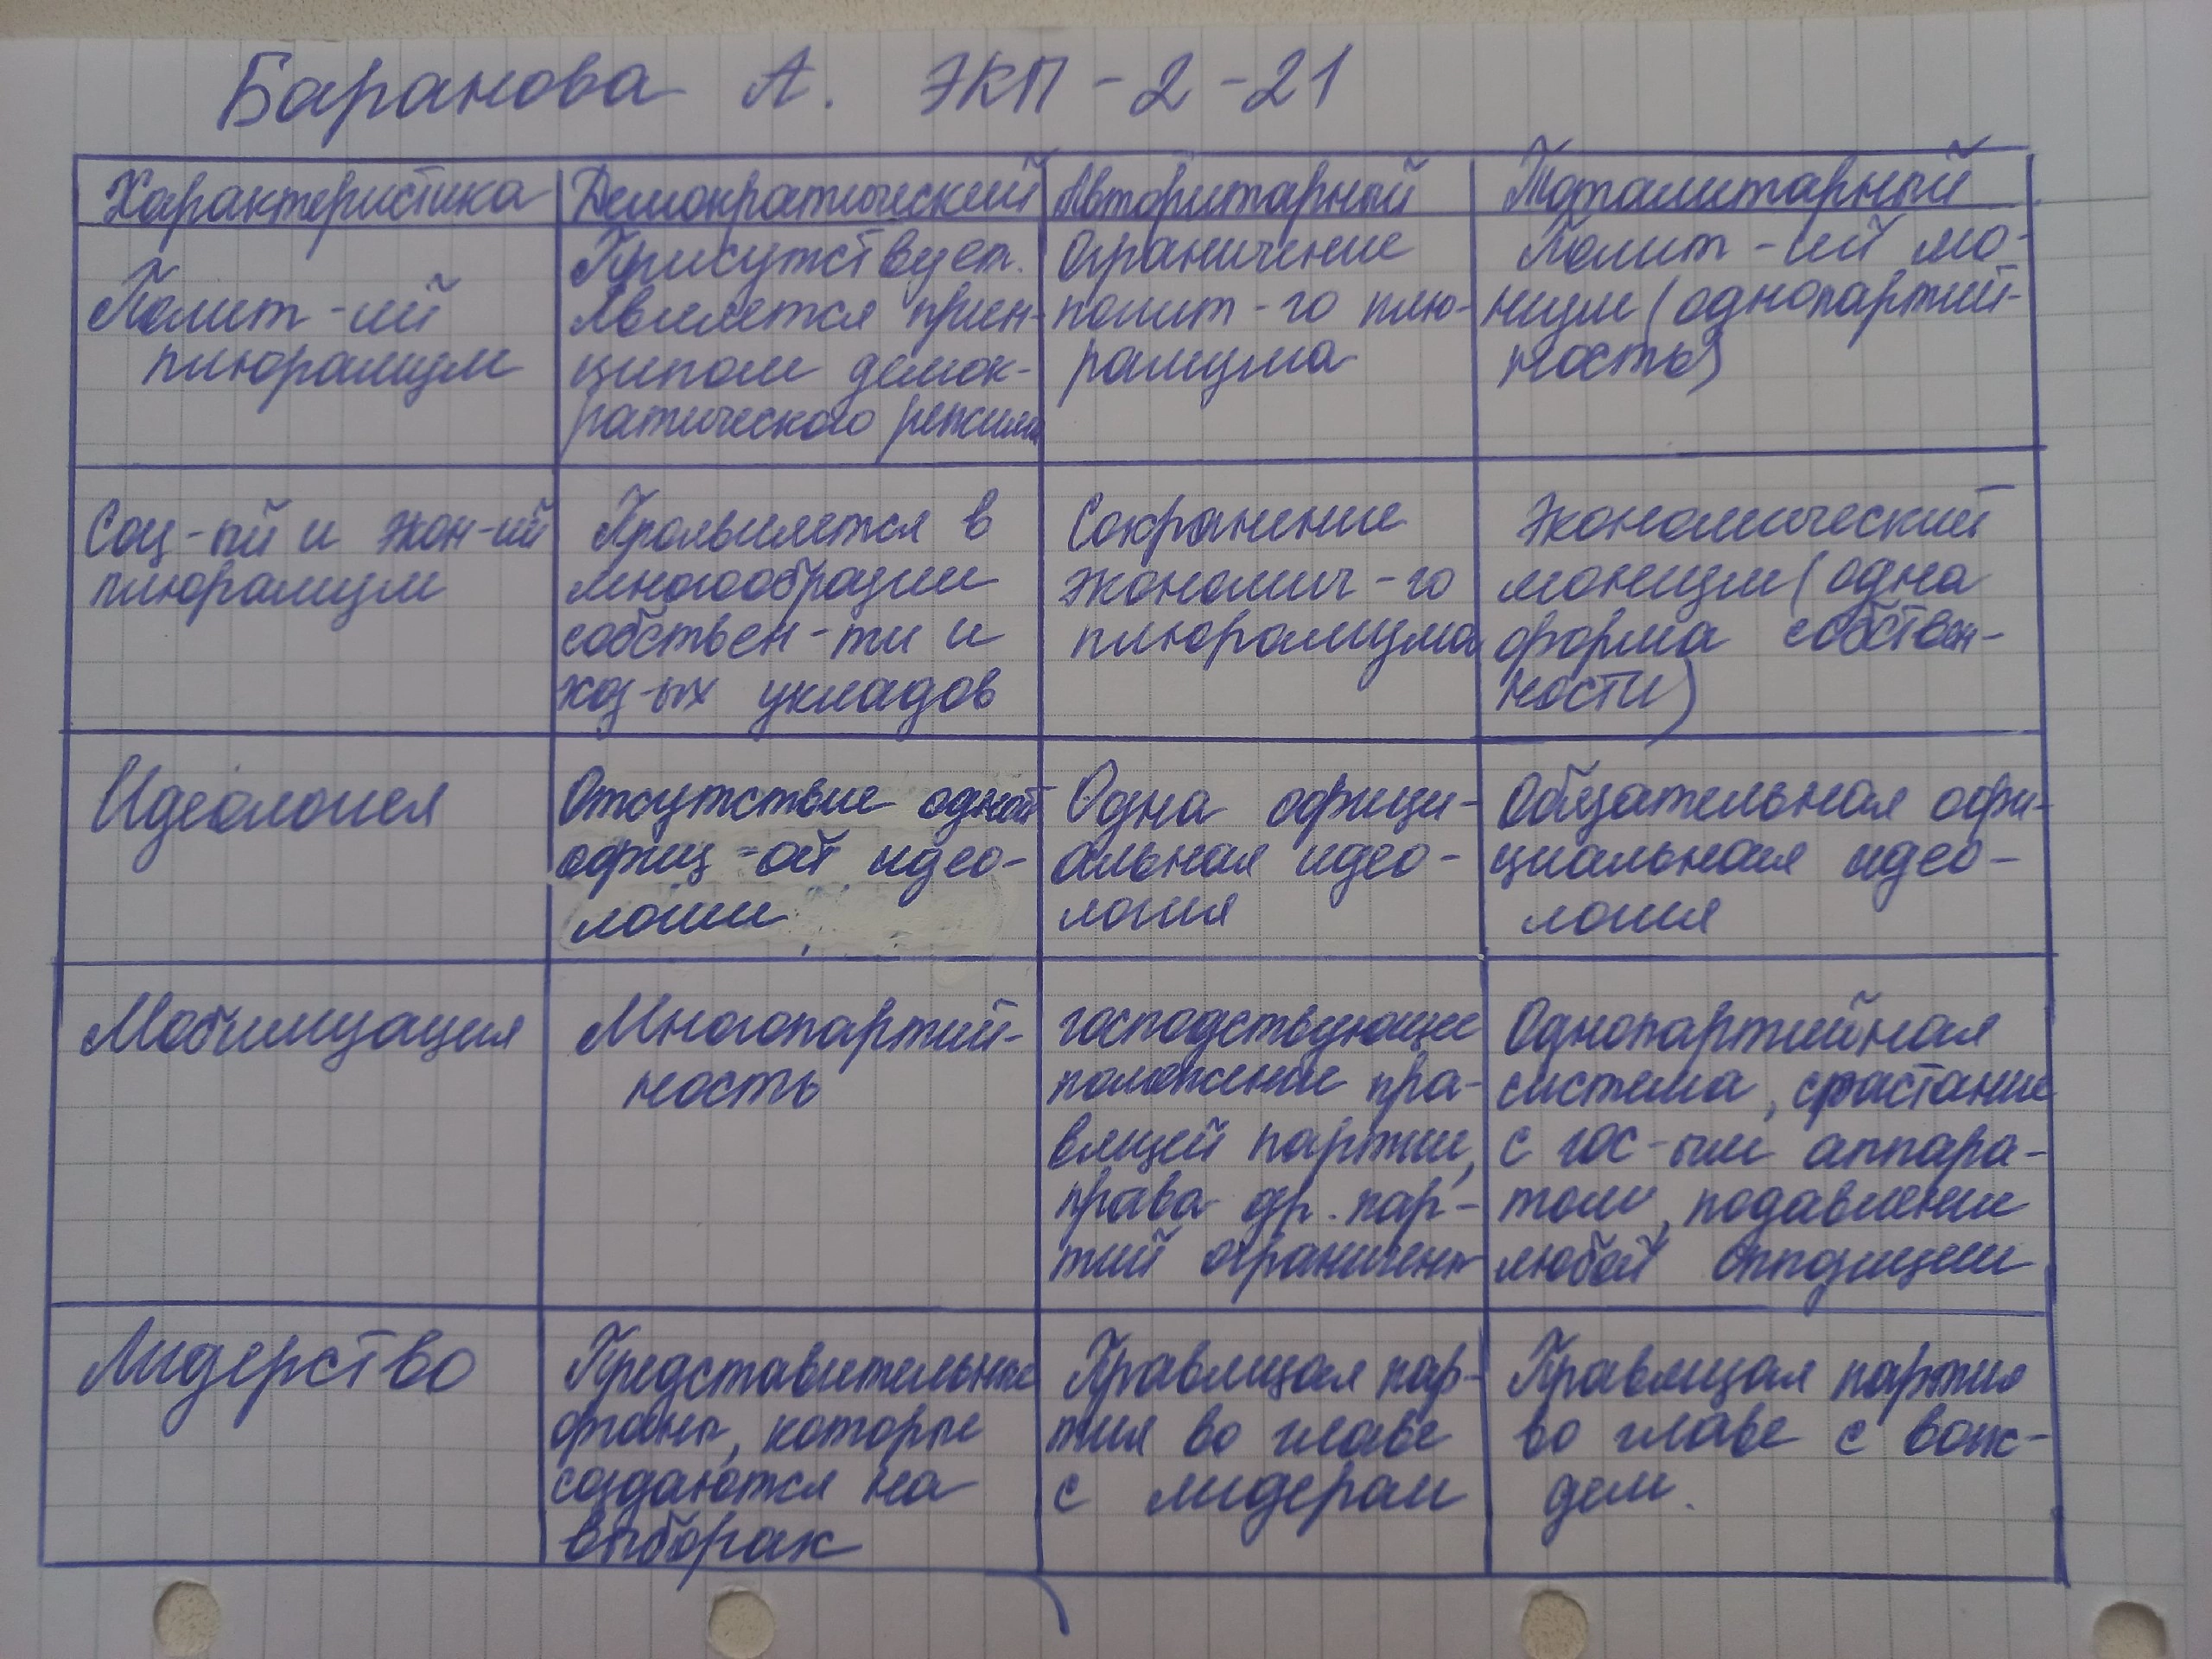 Баранова А. ЭКП-2-21
Характеристика
Демократический
Авторитарный
Тоталитарный
Полит-ий
плюрализм
Присутствует.
Является прин-
ципом демок-
ратического режима
Ограничение
полит-го плю-
рализма
Полит-ий мо-
низм (однопартий-
ность)
Соц-ый и экон-ий
плюрализм
Проявляется в
многообразии
собствен-ти и
хоз-ых укладов
Сохранение
экономич-го
плюрализма
Экономический
монизм (одна
форма собствен-
ности)
Идеология
Отсутствие одной
офиц-ой идео-
логии
Одна офици-
альная идео-
логия
Обязательная офи-
циальная идео-
логия
Мобилизация
Многопартий-
ность
господствующее
положение пра-
вящей партии,
права др. пар-
тий ограничены
Однопартийная
система, срастание
с гос-ым аппара-
том, подавление
любой оппозиции
Лидерство
Представительные
органы, которые
создаются на
выборах
Правящая пар-
тия во главе
с лидером
Правящая партия
во главе с вож-
дем.